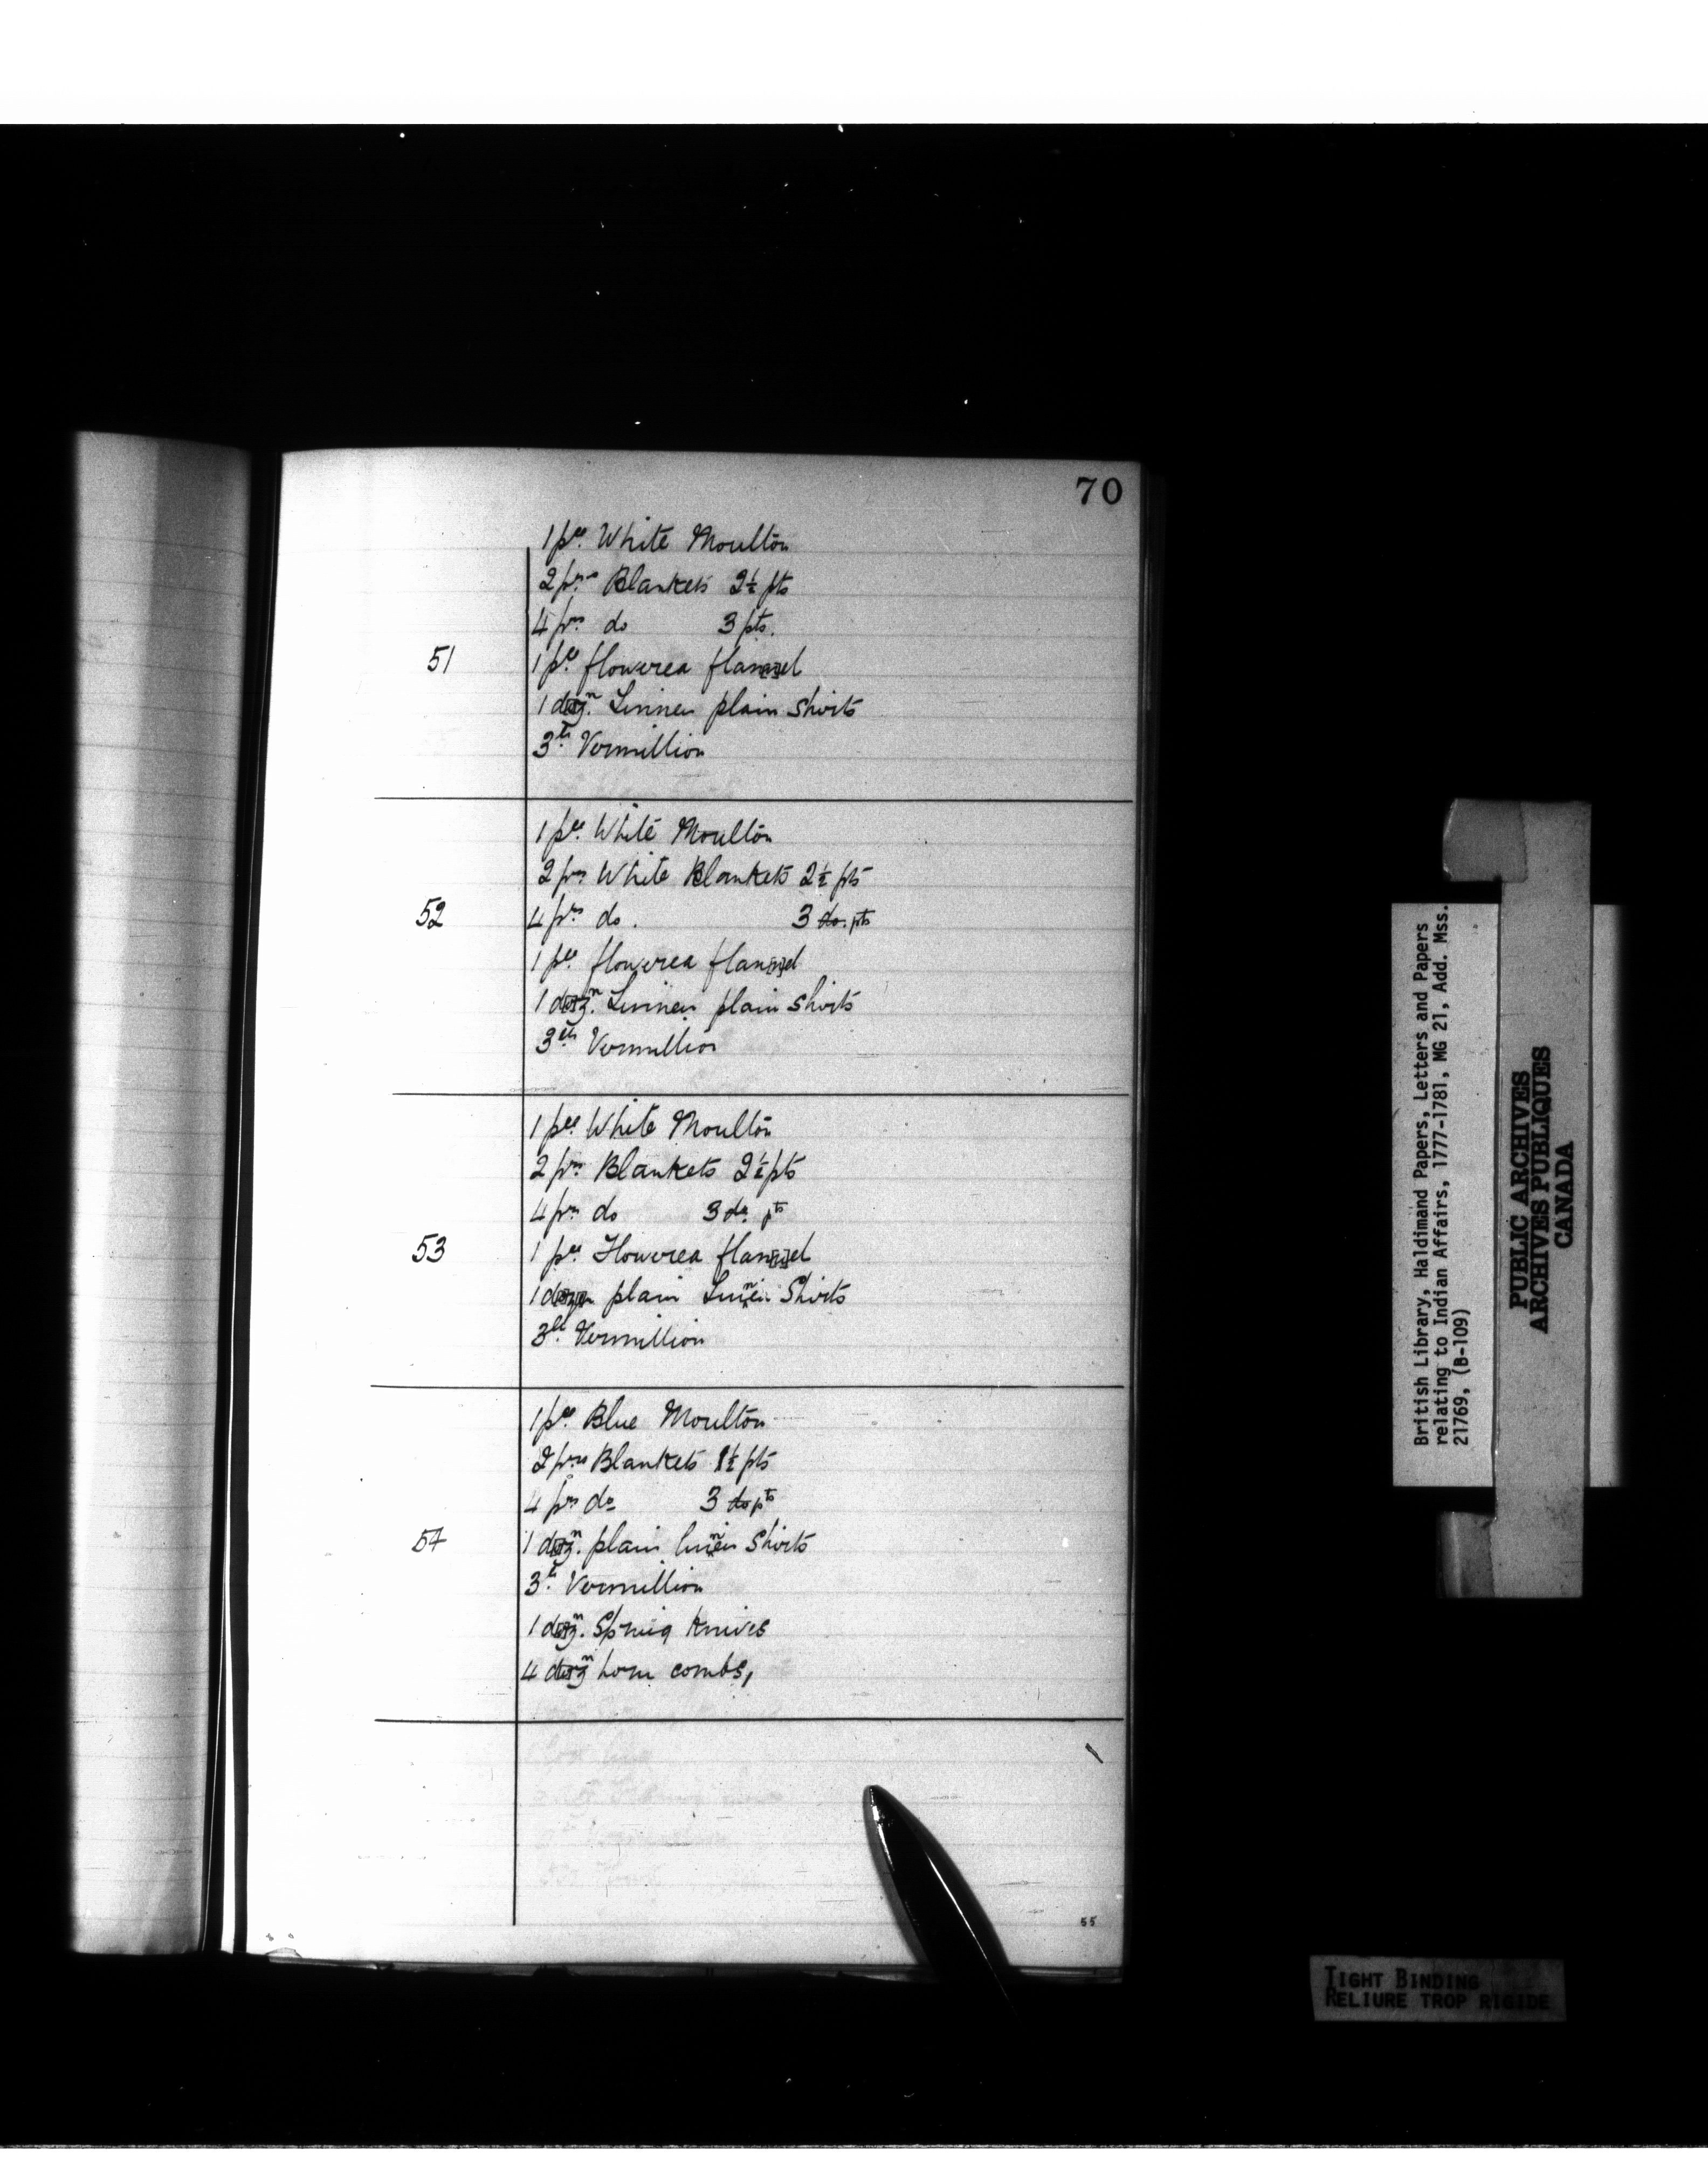 70
1 pce. White Moulton
2 prs Blankets 2½ pts
4 prs do 3 pts.
51 1 pce. flowerea flannel
1 dozn. Linnen plain Shirts
3lb. Vermillion
1 pce. White Moulton
2 prs White Blankets 2½ pts
52 4 prs do. 3 do. pts
1 pce. flowerea flannel
1 dozn. Linnen plain Shirts
3lb Vermillion
1 pce White Moulton
2 prs Blankets 2½ pts
4 prs do 3 do. pts
53 1 pce. Flowerea flannel
1 dozen plain Linnen Shirts
3lb. Vermillion
1 pce. Blue Moulton
2 prs Blankets 1½ pts
4 prs do 3 do pts
54 1 dozn. plain linnen Shirts
3lb. Vermillion
1 dozn. Spring Knives
4 dozn horn combs,
55
British Library, Haldimand Papers, Letters and Papers
relating to Indian Affairs, 1777-1781, MG 21, Add. Mss.
21769, (B-109)
PUBLIC ARCHIVES
ARCHIVES PUBLIQUES
CANADA
TIGHT BINDING
RELIURE TROP RIGIDE